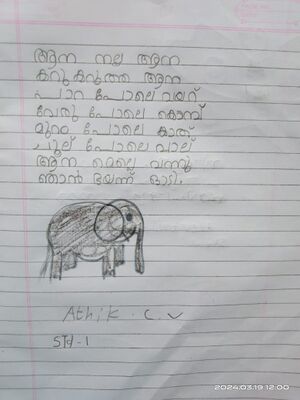 ആന നല്ല ആന
കറുകറുത്ത ആന
പാറ പോലെ വയറ്
വേരു പോലെ കൊമ്പ്
മുറം പോലെ കാത്
ചൂല് പോലെ വാല്
ആന മെല്ലെ വന്നു
ഞാൻ ഭയന്ന് ഓടി.
Athik . C. V
STd-1
2024.03.19 12:00